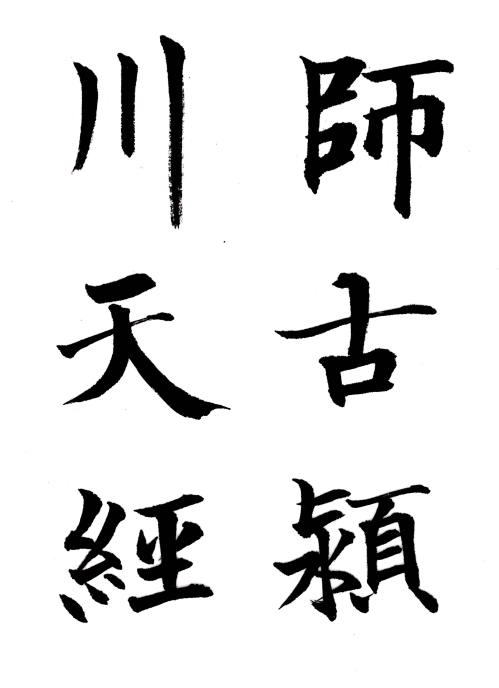 師古潁
川天經